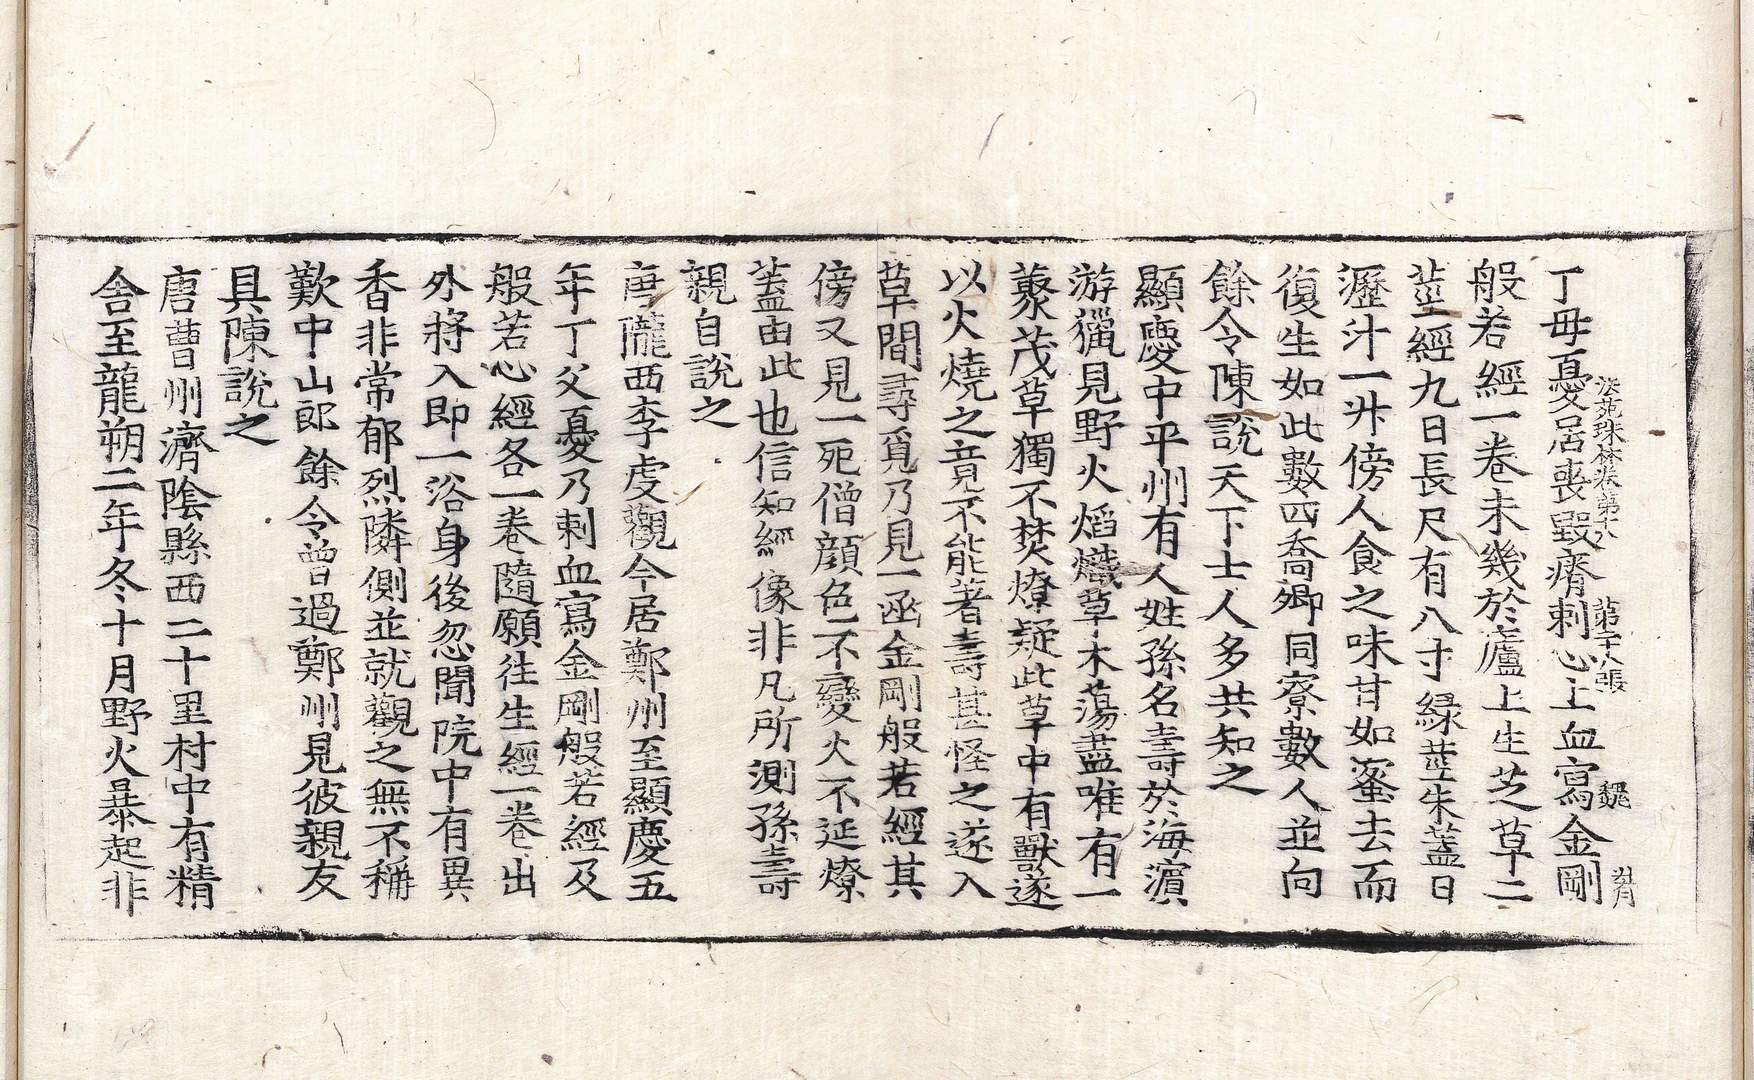 法苑珠林卷第十八　第二十八張　魏
丁毋憂居喪毀瘠刺心上血寫金剛
般若經一卷未幾於廬上生芝草二
莖經九日長尺有八寸緑莖朱蓋日
瀝汁一升傍人食之味甘如蜜去而
復生如此數四喬卿同寮數人並向
餘令陳說天下士人多共知之
顯慶中平州有人姓孫名壽於海濵
游獵見野火熖熾草木蕩盡唯有一
藂茂草獨不焚燎疑此草中有獸遂
以火燒之竟不能著壽甚怪之遂入
草間尋覓乃見一函金剛般若經其
傍又見一死僧顔色不變火不延燎
蓋由此也信知經像非凡所測孫壽
親自說之
唐隴西李虔觀今居鄭州至顯慶五
年丁父憂乃刺血寫金剛般若經及
般若心經各一卷隨願往生經一卷出
外將入即一浴身後忽聞院中有異
香非常郁烈隣側並就觀之無不稱
歎中山郎餘令曾過鄭州見彼親友
具陳說之
唐曹州濟陰縣西二十里村中有精
舎至龍朔二年冬十月野火暴起非